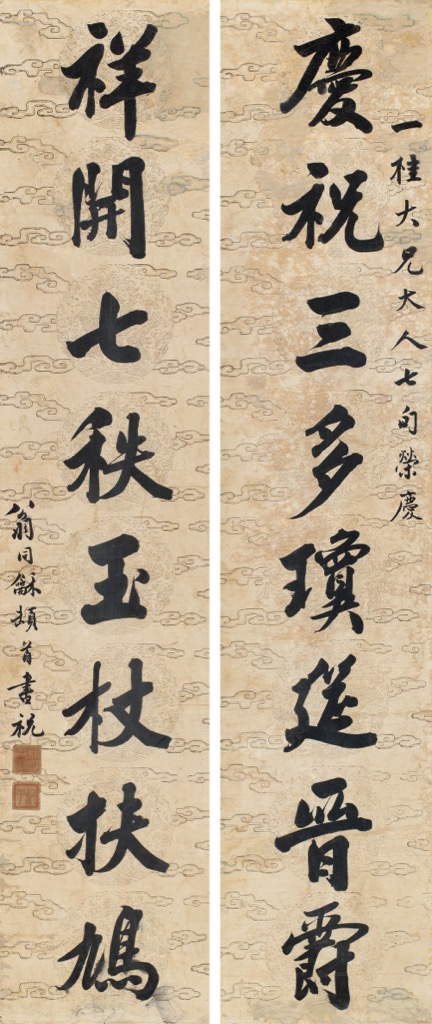 一桂大兄大人七旬榮慶
慶祝三多瓊筵晉爵
祥開七秩玉杖扶鳩
翁同龢頓首書祝